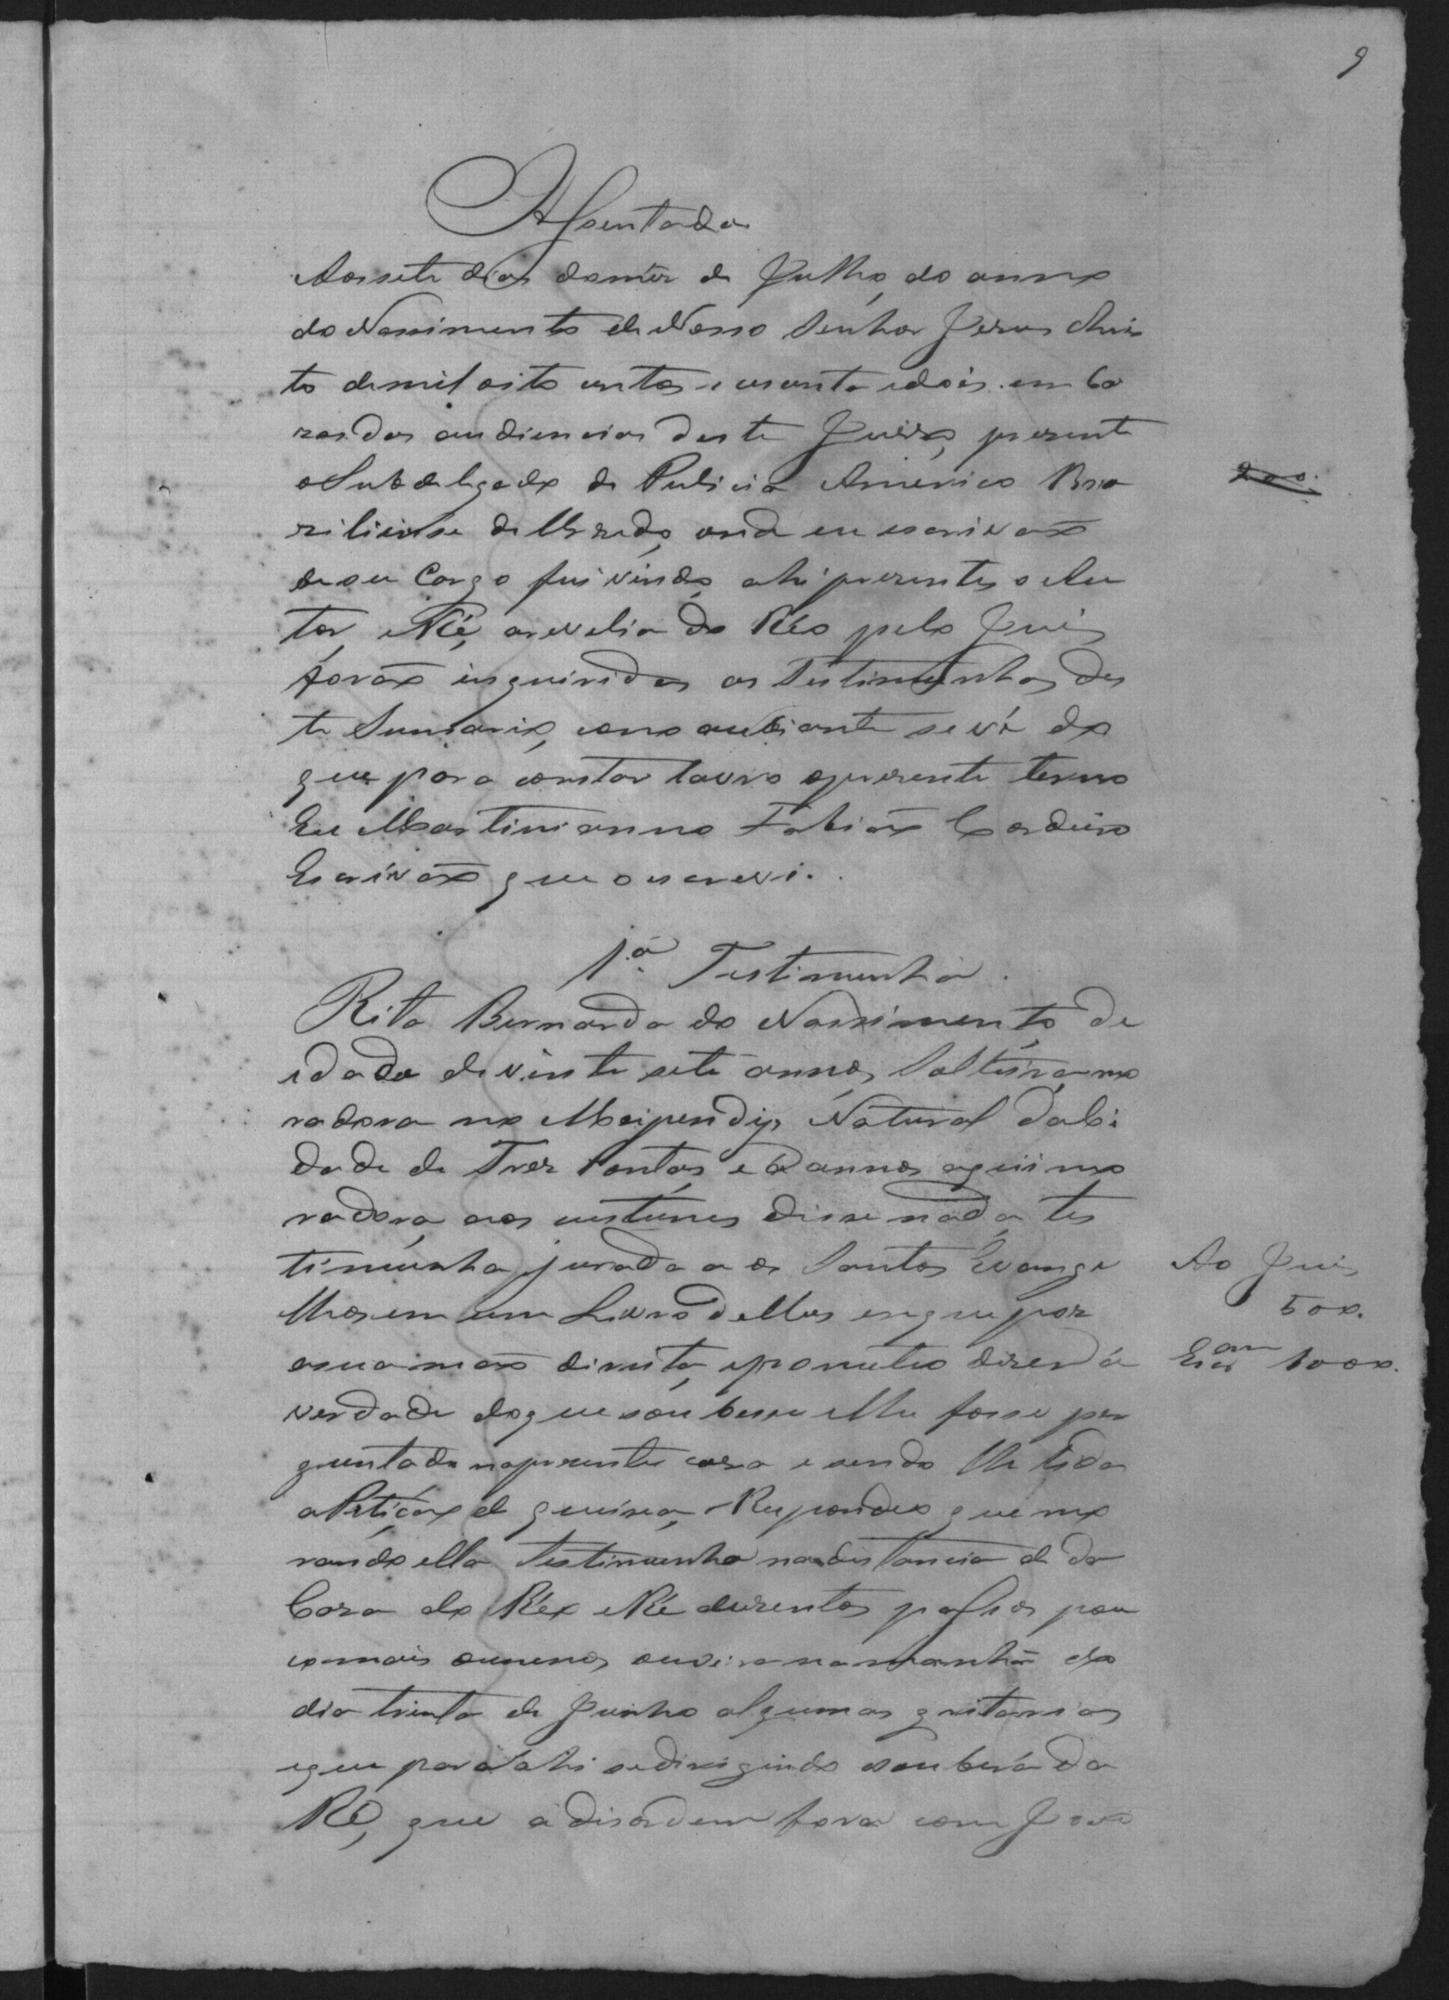 9
Assentada
Aos sete dias do mes de Julho, do anno
do Nascimento de Nosso Senhor Jesus Chris
to de mil oito centos e oitenta e dois em Ca
zas das audiencias deste Juizo, presente
o Subdelegado de Pulicia Americo Bra
ziliense de
200.
de seu Cargo fui vindo, ahi presentes o Au
tor, e Ré, a revelia do Réo pelo Juis
forão inqueridas as Testimunhas des
te Sumario, como audiante se vê do
que para constar lavro o presente termo
Eu Martinianno Fabião Cordeiro
Escrivão que o escrevi.
1.ª Testimunha.
Rita Bernarda do Nascimento, de
idade de vinte sete annos, Solteira, mo
radora no Natural da Ci
dade de Tres Pontas, e annos aqui mo
radora, aos custumes disse nada, tes
timunha jurada aos Santos Evange
lhos em um Livro delles em que pôz
a sua mão direita, e prometeo dizer a
verdade do que soubesse e lhe fosse per
guntado na prezente caza e sendo lhe lida
a Petição de queixa, Respondeo que mo
rando ella Testimunha na distancia da
Caza do Réo e Ré duzentos passos pou
co mais ou menos, ouvira na manhã do
dia trinta de Junho algumas gritarias
e que para ahi se dirigindo soubera da
Ré, que a disordem fora com José
Ao Juis
500.
Escram 1000.